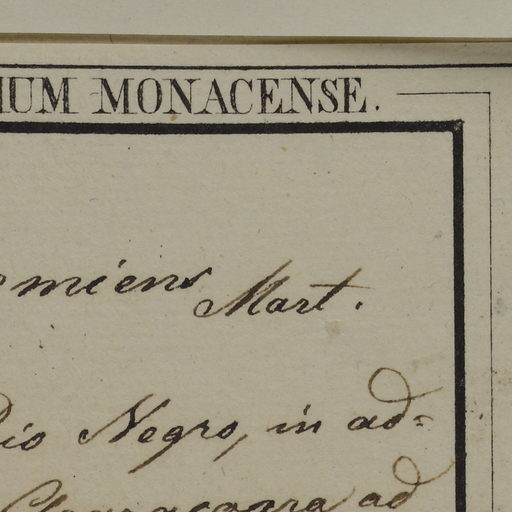 IUM MONACENSE.
omiens Mart.
Rio Negro, in ad=
ad